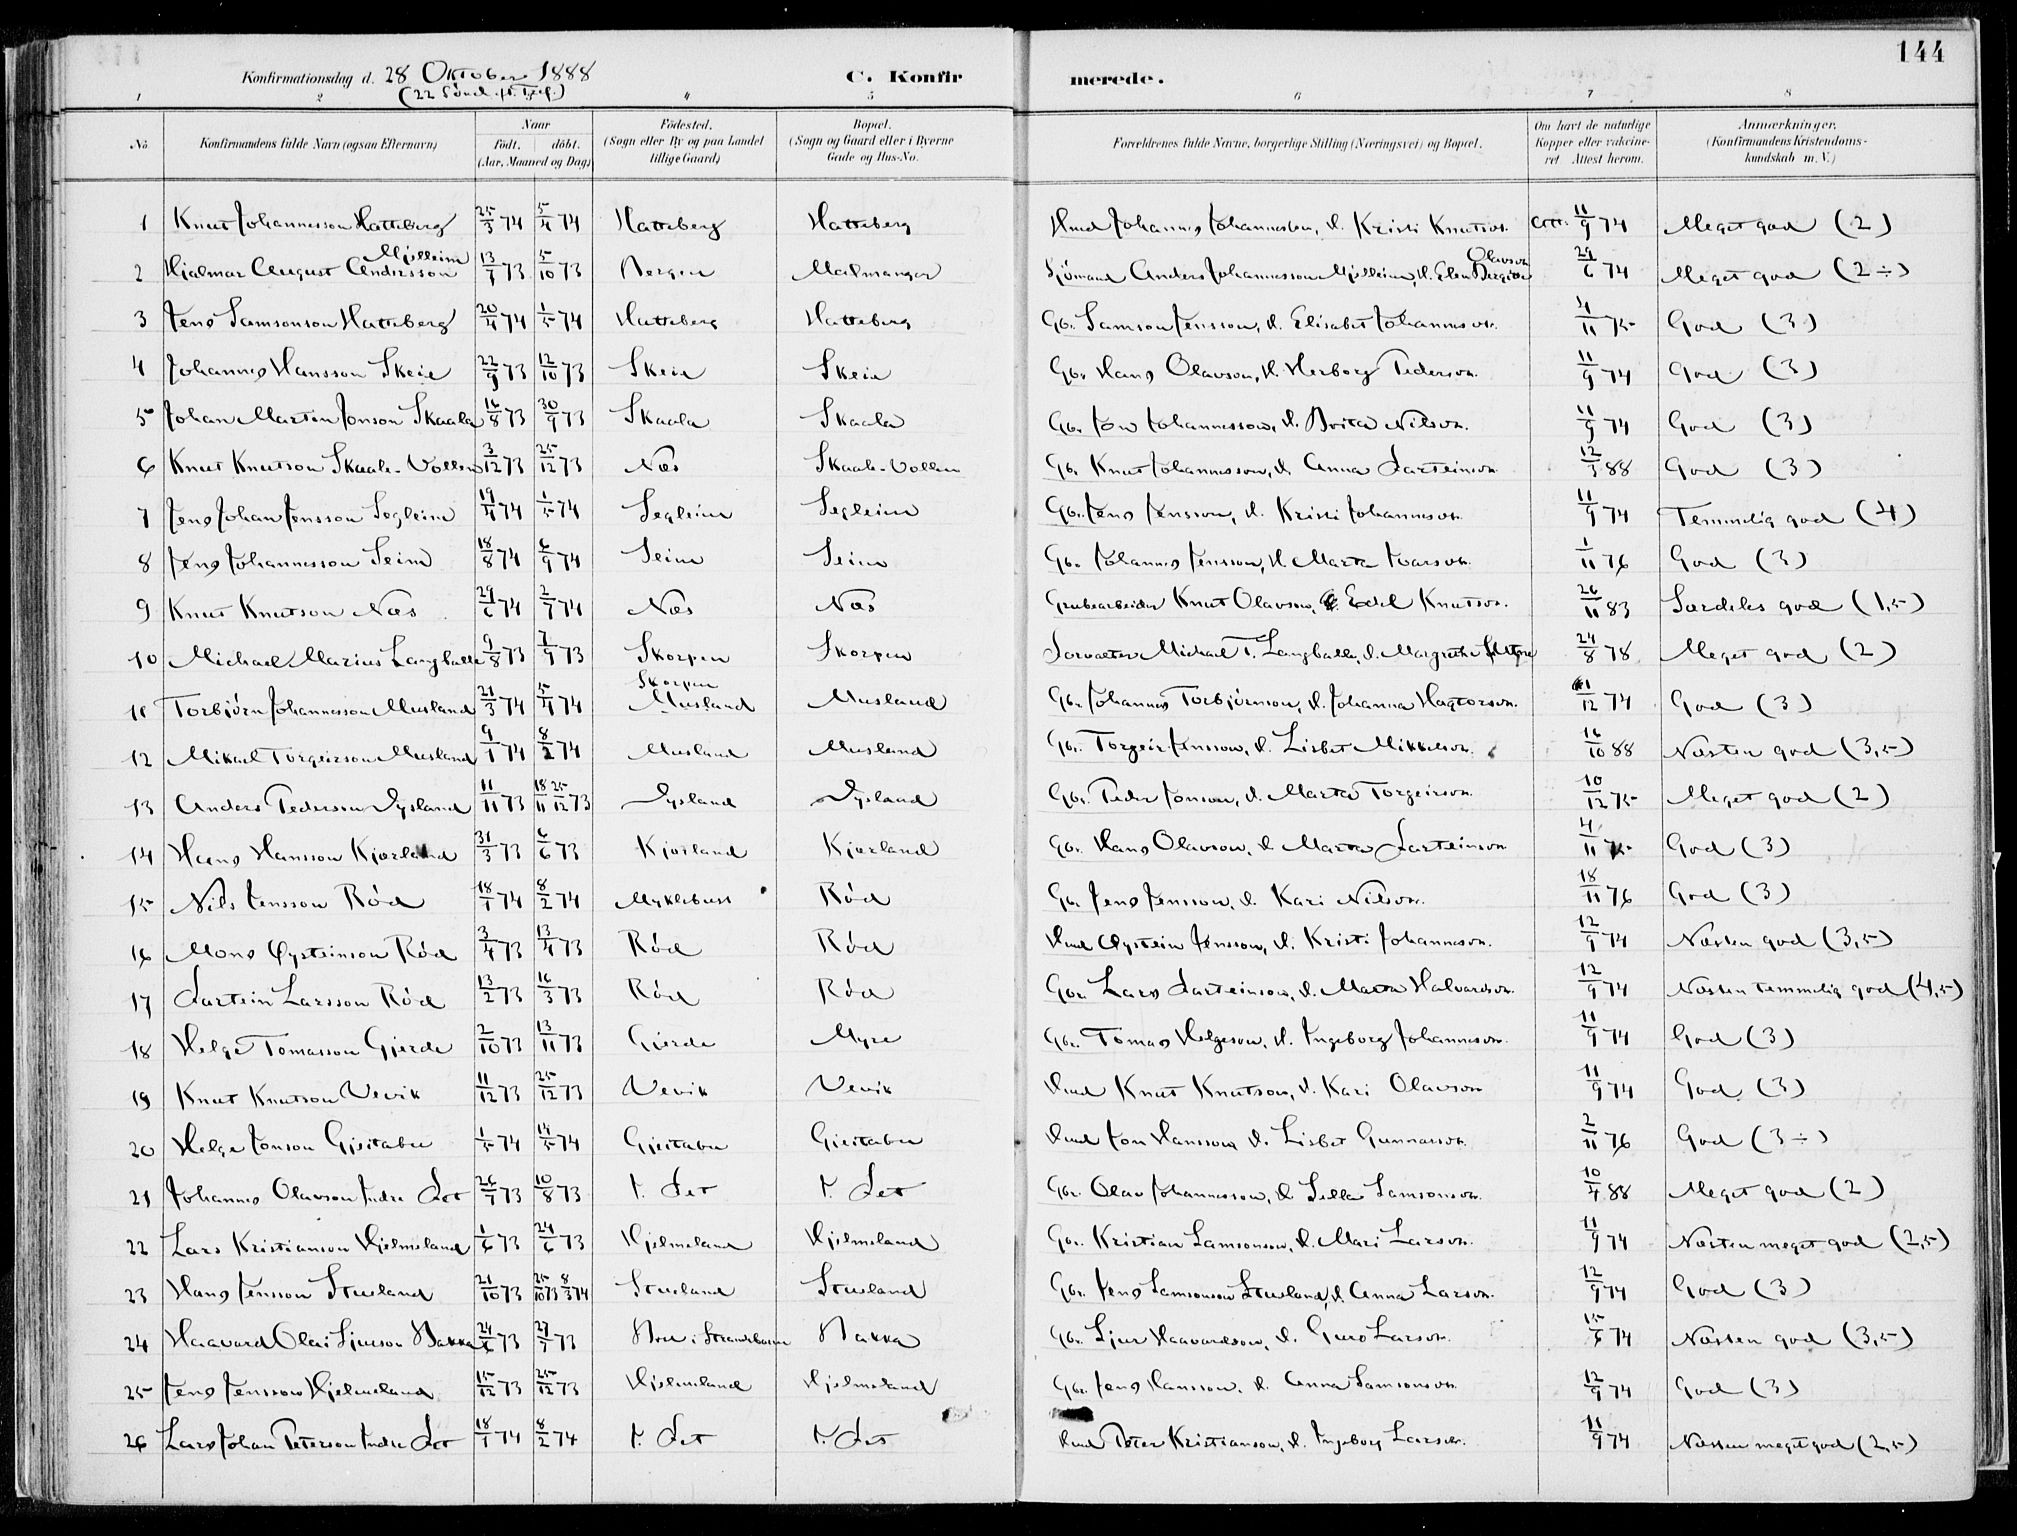 144
Konfirmationsdag d. 28 Oktober 1888 C. Konfirmerede.
(22 Sönd. f. Tref.)
1 2 3 4 5 6 7 8
No. Konfirmandens fulde Navn (ogsaa Efternavn) Naar Födt. döbt. (Aar, Maaned og Dag) Födested. (Sogn eller By og paa Landet tillige Gaard) Bopæl. (Sogn og Gaard eller i Byerne Gade og Hus-No. Forældrenes fulde Navne, borgerlige Stilling (Næringsvei) og Bopæl. Om havt de naturlige Kopper eller vakcineret Attest herom. Anmærkninger. (Konfirmandens Kristendomskundskab m. V.)
1 Knut Johannesson Hatteberg 25/3 74 5/4 74 Hatteberg Hatteberg Hmd Johannes Johannesson, H. Kristi Knutsdr. Att. 11/9 74 Meget god (2)
2 Hjalmar August Andersson Mjelleim 13/7 73 5/10 73 Bergen Malmanger Sjömand Anders Johannesson Mjelleim, H. Elen Olavson 29/6 74 Meget god (2÷)
3 Jens Samsonson Hatteberg 20/4 74 1/5 74 Hatteberg Hatteberg Gbr. Samson Jensson, H. Elisabet Johannesdr. 4/11 75 God (3)
4 Johannes Hansson Skeie 22/9 73 12/10 73 Skeie Skeie Gbr. Hans Olavson, H. Herborg Pedersdr. 11/9 74 God (3)
5 Johan Martin Jonson Skaala 16/8 73 30/9 73 Skaala Skaala Gbr. Jon Johannesson, H. Brita Nilsdr. 11/9 74 God (3)
6 Knut Knutson Skaale-Vollen 3/12 73 25/12 73 Næs Skaale-Vollen Gbr. Knut Johannesson, H. Anna Larteinsdr. 12/3 88 God (3)
7 Jens Johan Jensson Segleim 19/4 74 1/5 74 Segleim Segleim Gbr. Jens Jensson, H. Kristi Johannesdr. 11/9 74 Temmelig god (4)
8 Jens Johannesson Seim 18/8 74 6/9 74 Seim Seim Gbr. Johannes Jensson, H. Marta Ivarsdr. 1/11 76 God (3)
9 Knut Knutson Næs 29/6 74 2/7 74 Næs Næs Grubearbeider Knut Olavson, Edel Knutsdr. 26/11 83 Særdeles god (1,5)
10 Michael Marius Langballe 9/8 73 7/9 73 Skorpen Skorpen Michael T. Langballe, H. Margrethe 24/8 78 Meget god (2)
11 Torbjörn Johannesson Musland 21/3 74 5/4 74 Skorpen Musland Musland Gbr. Johannes Torbjörnson, H. Johanna Hagtorsdr. 1/12 74 God (3)
12 Mikael Torgeirson Musland 9/1 74 8/2 74 Musland Musland Gbr. Torgeir Jensson, H. Lisbet Mikkelsdr. 16/10 88 Næsten god (3,5)
13 Anders Pederson Dysland 11/11 73 18/11 25/12 73 Dysland Dysland Gbr. Peder Jonson, H. Marta Torgeirsdr. 10/12 75 Meget god (2)
14 Hans Hansson Kjærland 31/3 73 6/6 73 Kjærland Kjærland Gbr. Hans Olavson, H. Marta Larteinsdr. 4/11 75 God (3)
15 Nils Jensson Röd 18/1 74 8/2 74 Myklebust Röd Gbr. Jens Jensson, H. Kari Nilsdr. 18/11 76 God (3)
16 Mons Øysteinson Röd 3/4 73 13/4 73 Röd Röd Hmd Øystein Jensson, H. Kristi Johannesdr. 12/9 74 Næsten god (3,5)
17 Lartein Larsson Röd 13/2 73 16/3 73 Röd Röd Gbr. Lars Larteinson, H. Marta Halvardsdr. 12/9 74 Næsten temmelig god (4,5)
18 Helge Tomasson Gjerde 2/10 73 13/11 73 Gjerde Myre Gbr. Tomas Helgeson, H. Ingeborg Johannesdr. 11/9 74 God (3)
19 Knut Knutson Vevik 11/12 73 25/12 73 Vevik Vevik Hmd Knut Knutson, H. Kari Olavson 11/9 74 God (3)
20 Helge Jonson Gjeitabu 1/5 74 14/5 74 Gjeitabu Gjeitabu Hmd Jon Hansson, H. Lisbet Gunnarsdr. 2/11 76 God (3÷)
21 Johannes Olavson Indre Løt 26/7 73 10/8 73 I. Løt I. Løt Gbr. Olav Johannesson, H. Silla Samsonsdr. 10/4 88 Meget god (2)
22 Lars Kristianson Hjelmeland 1/6 73 24/6 73 Hjelmeland Hjelmeland Gbr. Kristian Samsonson, H. Mari Larsdr. 11/9 74 Næsten meget god (2,5)
23 Hans Jensson Stueland 21/10 73 25/10 73 8/3 74 Stueland Stueland Gbr. Jens Samsonson Stueland, H. Anna Larsdr. 12/9 74 God (3)
24 Haavard Olai Sjurson Bakka 24/6 73 27/7 73 Bakka Gbr. Sjur Haavardson, H. Guro Larsdr. 15/6 74 Næsten god (3,5)
25 Jens Jensson Hjelmeland 15/12 73 25/12 73 Hjelmeland Hjelmeland Gbr. Jens Hansson, H. Anna Samsonsdr. 12/9 74 God (3)
26 Lars Johan Peterson Indre Løt 18/1 74 8/2 74 I. Løt I. Løt Hmd Peter Kristianson, H. Ingeborg Larsdr. 11/9 74 Næsten meget god (2,5)